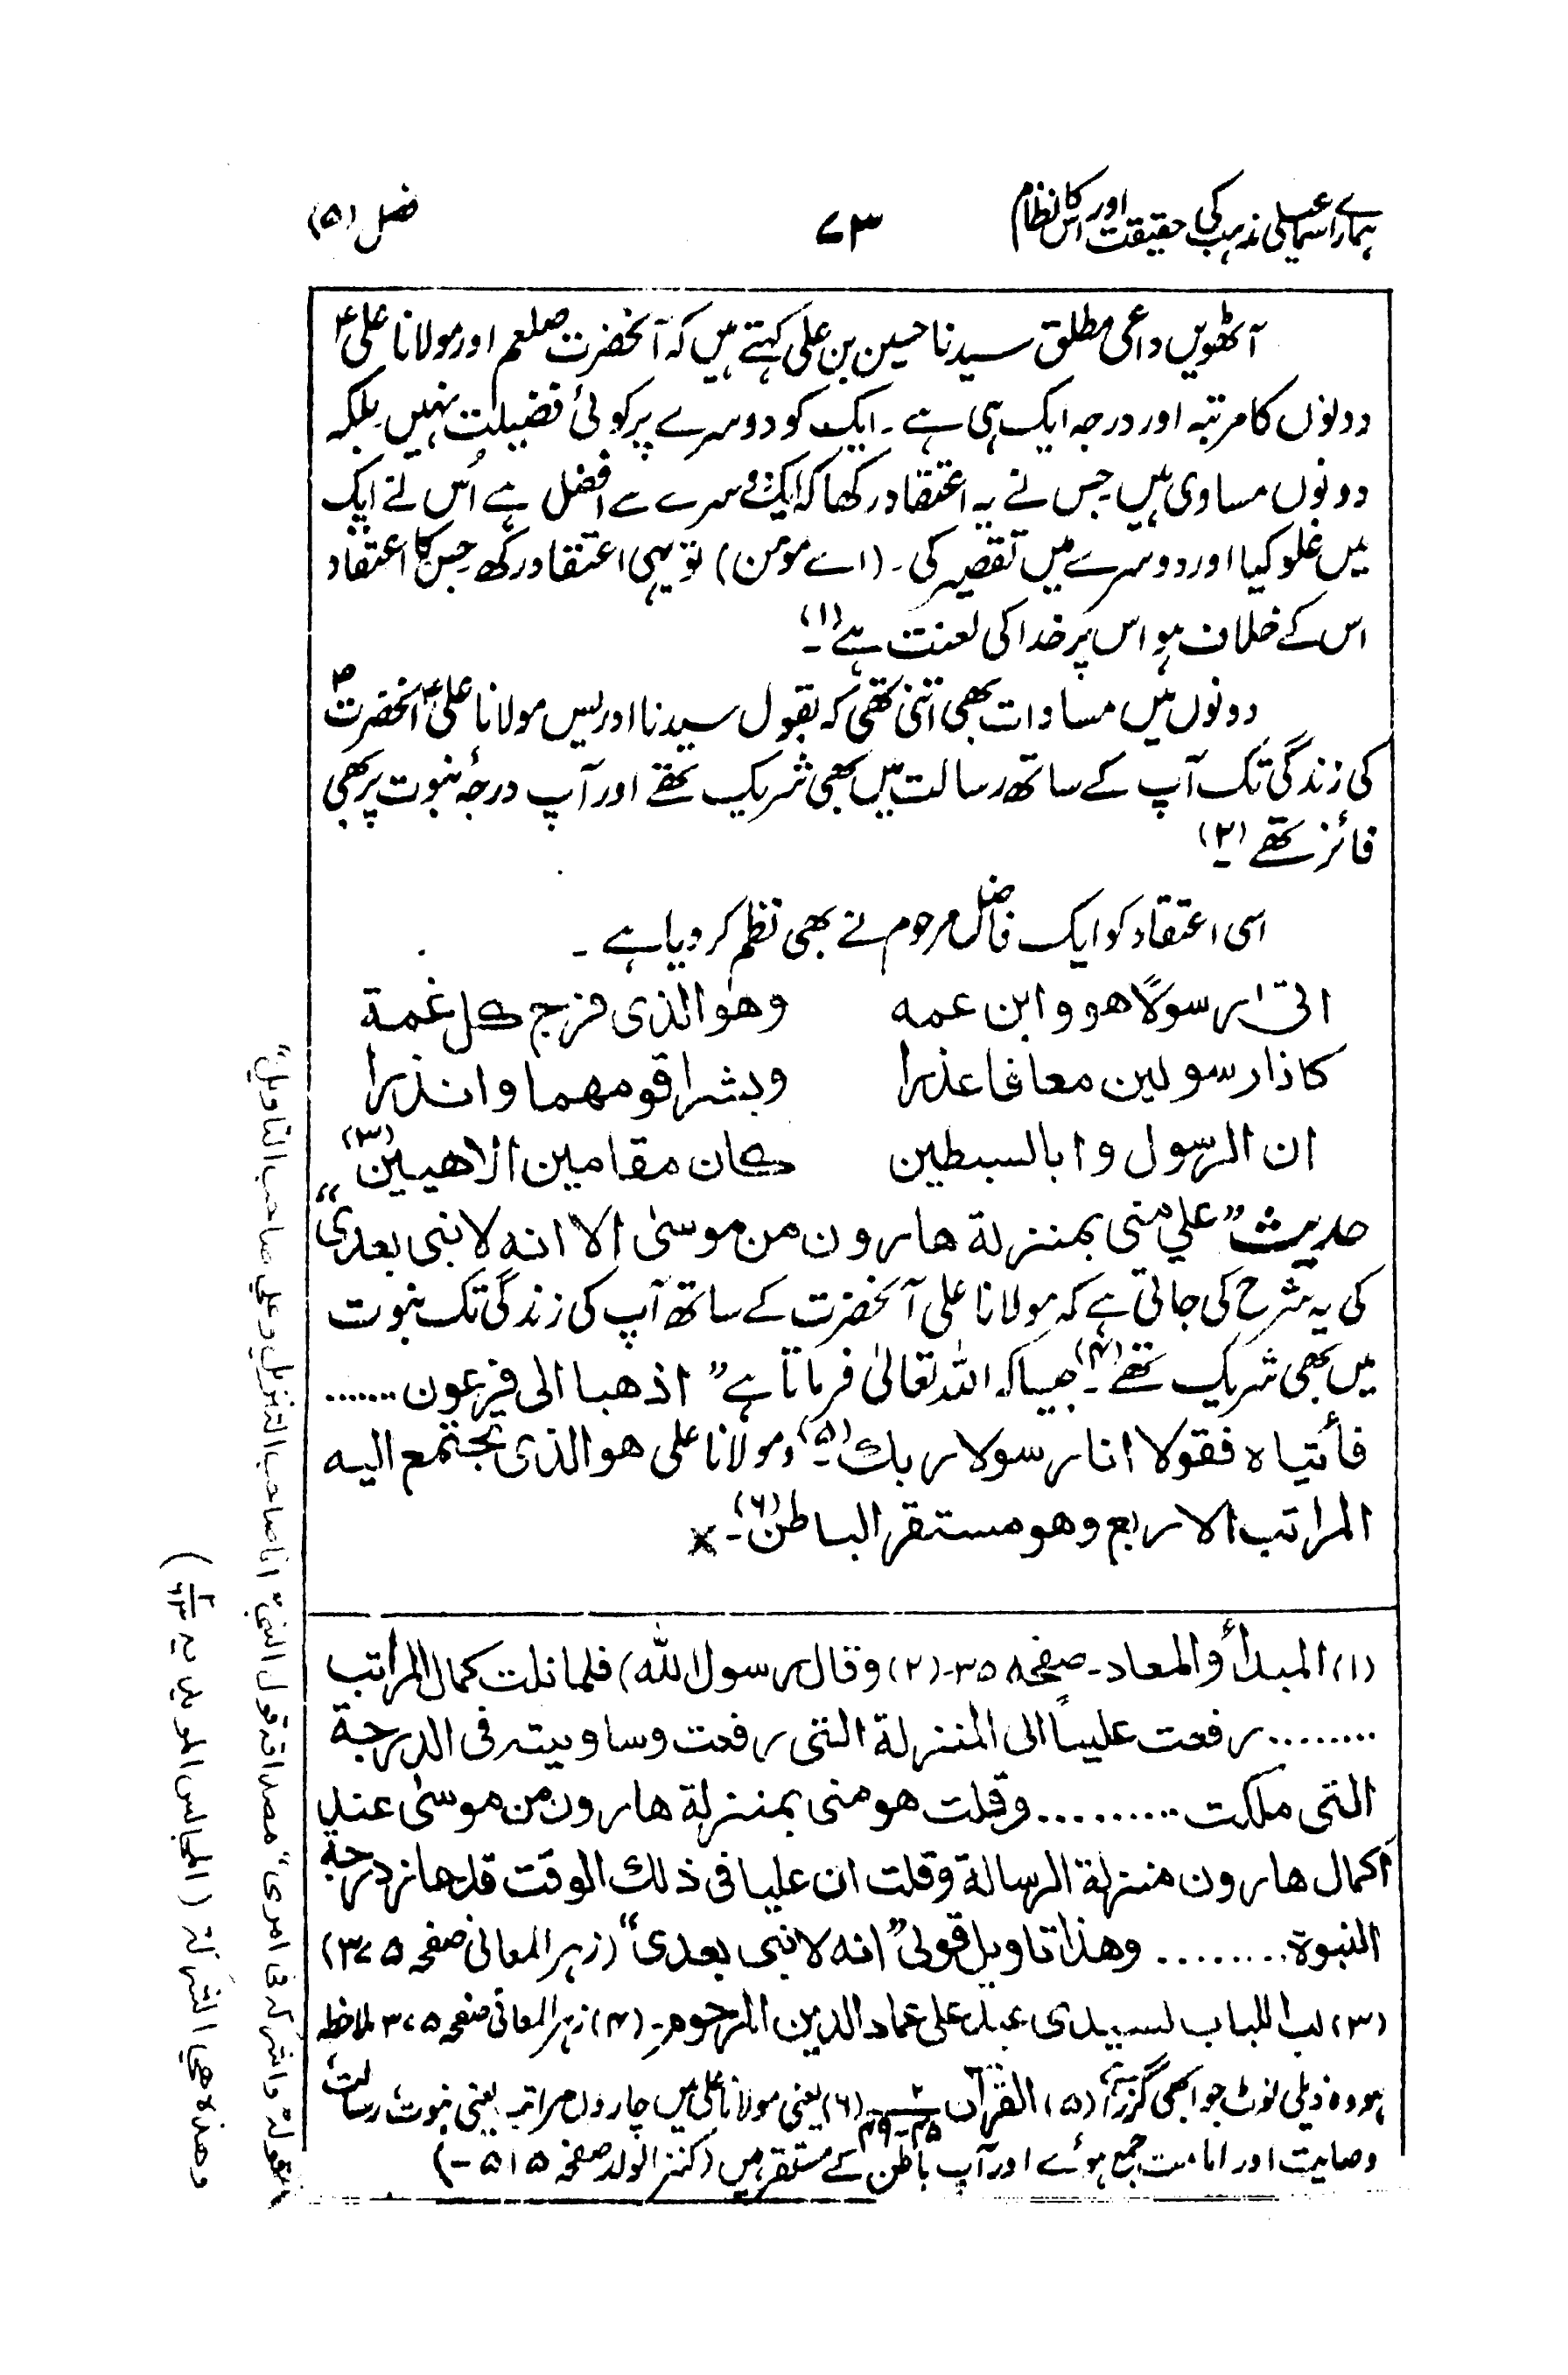 ہمارے اسماعیلی مذہب کی حقیقت اور اس کا نظام
۷۳
فصل (۵)
آٹھویں داعی مطلق سیدنا حسین بن علی کہتے ہیں کہ آنحضرت صلعم اور مولانا علیؑ
دونوں کا مرتبہ اور درجہ ایک ہی ہے۔ ایک کو دوسرے پر کوئی فضیلت نہیں بلکہ
دونوں مساوی ہیں جس نے یہ اعتقاد رکھا کہ ایک دوسرے سے افضل ہے اُس نے ایک
میں غلو کیا اور دوسرے میں تقصیر کی۔ (اے مومن) تو یہی اعتقاد رکھ جس کا اعتقاد
اس کے خلاف ہو اس پر خدا کی لعنت ہے (۱)۔
دونوں میں مساوات بھی اتنی تھی کہ بقول سیدنا ادریس مولانا علیؑ آنحضرتؐ
کی زندگی تک آپ کے ساتھ رسالت میں بھی شریک تھے اور آپ درجۂ نبوت پر بھی
فائز تھے (۲)۔
اسی اعتقاد کو ایک فاضل مرحوم نے بھی نظم کر دیا ہے ۔
اتیٰ رسولًا هو وابن عمه وهو الذی فرج کل غمة
کاذا رسولین معا فاعذرا وبشرا قومهما وانذرا
ان الرسول وابا السبطین کان مقامین الاهیین (۳)
حدیث ”علي منی بمنزلة هارون من موسیٰ الا انه لا نبی بعدی“
کی یہ شرح کی جاتی ہے کہ مولانا علی آنحضرت کے ساتھ آپ کی زندگی تک نبوت
میں بھی شریک تھے (۴)۔ جیسا کہ اللہ تعالیٰ فرماتا ہے ”اذهبا الی فرعون .......
فأتیاه فقولا انا رسولا ربك (۵)۔ ومولانا علی هو الذی تجتمع الیه
المراتب الاربع وهو مستقر الباطن (۶)۔ x
(۱) المبدأ والمعاد۔ صفحہ ۳۵۔ (۲) وقال رسول الله) فلما نلت کمال المراتب
......... رفعت علیًا الی المنزلة التی رفعت وساویته فی الدرجة
التی ملکت .......... وقلت هو منی بمنزلة هارون من موسیٰ عند
اکمال هارون منزلة الرسالة وقلت ان علیا فی ذلك الوقت قد حاز درجة
النبوة ......... وهذا تاویل قولی ”انه لا نبی بعدی“ (زہر المعانی صفحہ ۳۷۵)
(۳) لب اللباب لسیدی عبد علی عماد الدین المرحوم۔ (۴) زہر المعانی صفحہ ۳۷۵ ملاحظہ
ہو وہ ذیلی نوٹ جو ابھی گزرا (۵) القرآن ۲۰ ۴۵-۴۹ (۶) یعنی مولانا علی میں چاروں مراتب یعنی نبوت، رسالت
وصایت اور امامت جمع ہوئے اور آپ باطن کے مستقر ہیں (کنز الولد صفحہ ۵۱۵-)
بقولہ واشرکہ فی امری“ مصداقہ قول النبی ”انا صاحب التنزیل وعلي صاحب التاویل“
وهذه هي الشرکة (المجالس المؤیدیہ ۲/۶۳)